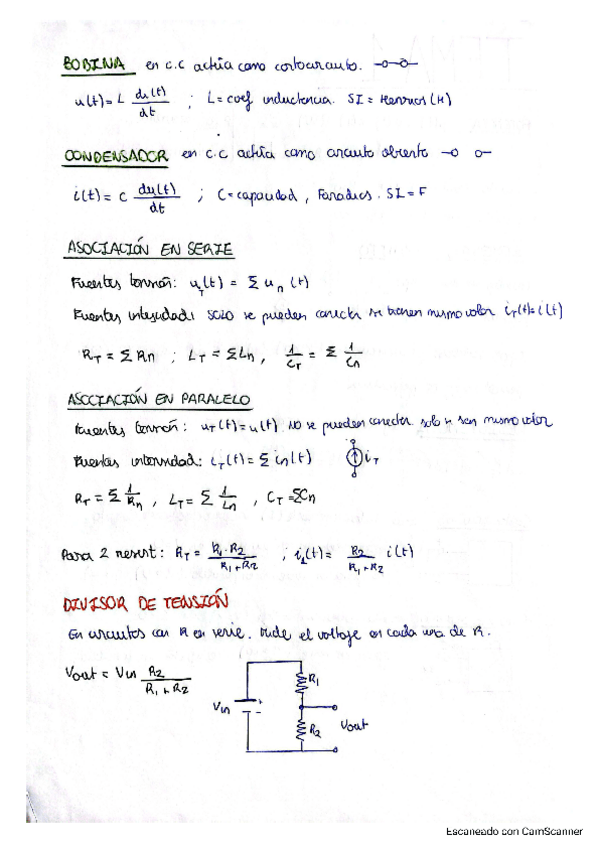 BOBINA en c.c actúa como cortocircuito.
u(t) = L di(t)/dt ; L = coef inductancia. SI = Henrios (H)
CONDENSADOR en c.c actúa como circuito abierto
i(t) = C du(t)/dt ; C = capacidad, Faradios. SI = F
ASOCIACIÓN EN SERIE
Fuentes tensión: u_T(t) = Σ u_n (t)
Fuentes intensidad: SOLO se pueden conectar si tienen mismo valor i_T(t) = i(t)
R_T = Σ R_n ; L_T = Σ L_n , 1/C_T = Σ 1/C_n
ASOCIACIÓN EN PARALELO
Fuentes tensión: u_T(t) = u(t) . NO se pueden conectar solo si son mismo valor
Fuentes intensidad: i_T(t) = Σ i_n(t) i_T
R_T = Σ 1/R_n , L_T = Σ 1/L_n , C_T = ΣC_n
Para 2 resist: R_T = R_1·R_2/R_1+R_2 ; i_1(t) = R_2/R_1+R_2 i(t)
DIVISOR DE TENSIÓN
En circuitos con R en serie. Divide el voltaje en cada una de R.
Vout = Vin R_2/R_1+R_2
R_1
Vin + -
R_2 Vout
Escaneado con CamScanner